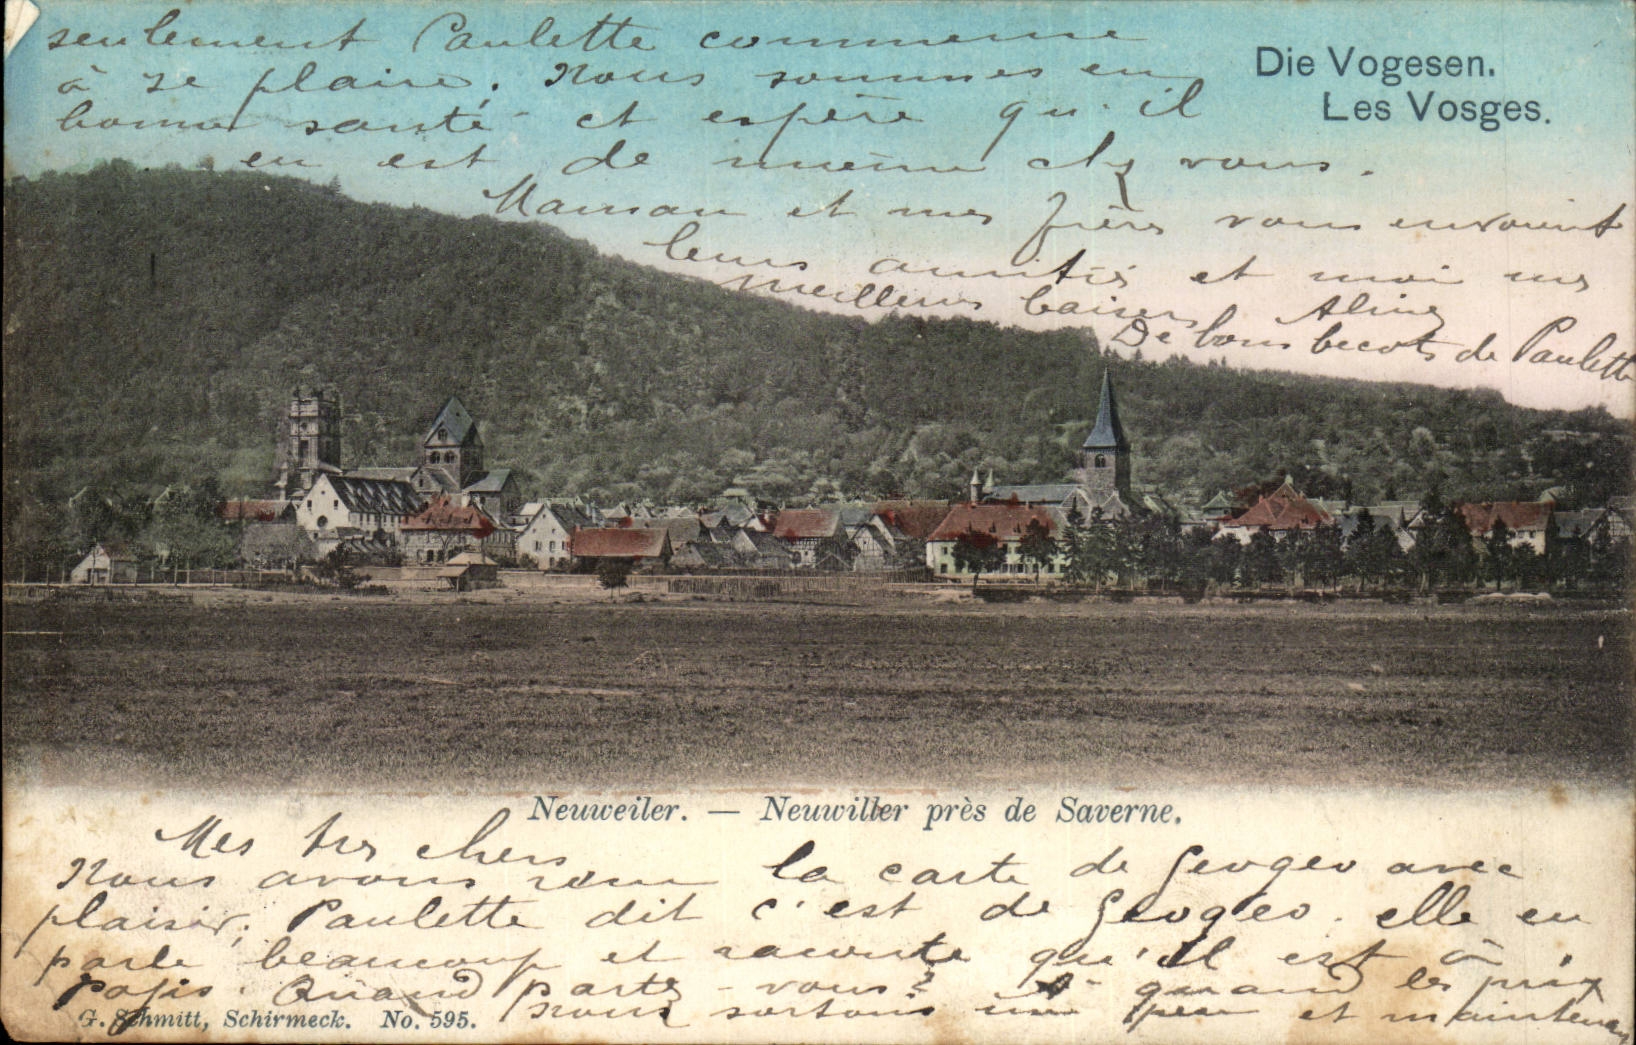 seulement Paulette commence
à se plaire. Nous sommes en
bonne santé et espère qu'il
en est de même chez vous.
Maman et mes frères vous envoient
leurs amitiés et moi mes
meilleurs baisers Aline
De bons becots de Paulette
Die Vogesen.
Les Vosges.
Neuweiler. — Neuwiller près de Saverne.
Mes trs chers
Nous avons reçu la carte de Geogeo avec
plaisir, Paulette dit c'est de Geogeo. elle en
parle beaucoup et raconte qu'il est à
Paris. Quand partez-vous? à quand les prix
Nous sortons un peu et maintenant
G. Schmitt, Schirmeck. No. 595.